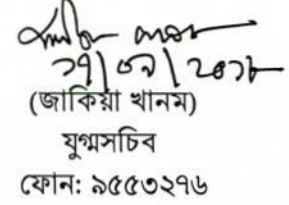 ২৭/০৯/২০১৮
(জাকিয়া খানম)
যুগ্মসচিব
ফোন: ৯৫৫৩২৭৬